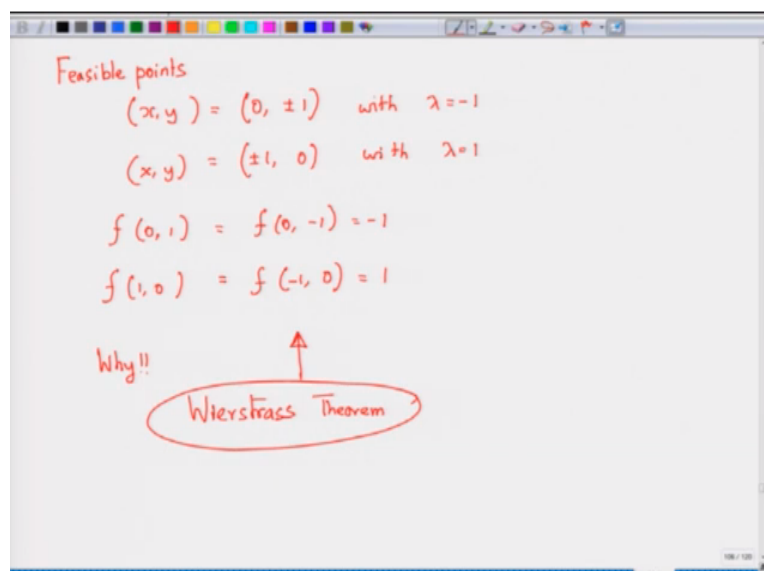 Feasible points
(x, y) = (0, ±1) with λ=-1
(x, y) = (±1, 0) with λ=1
f(0,1) = f(0,-1) = -1
f(1,0) = f(-1,0) = 1
Why!!
Wierstrass Theorem
106 / 120